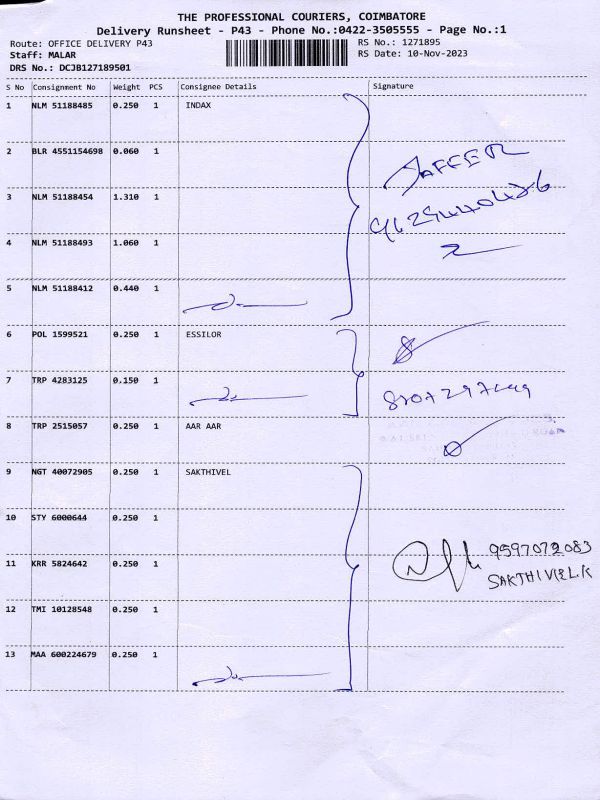 THE PROFESSIONAL COURIERS, COIMBATORE
Delivery Runsheet - P43 - Phone No.:0422-3505555 - Page No.:1
Route: OFFICE DELIVERY P43
Staff: MALAR
DRS No.: DCJB127189501
RS No.: 1271895
RS Date: 10-Nov-2023
S No Consignment No Weight PCS Consignee Details Signature
1 NLM 51188485 0.250 1 INDAX
2 BLR 4551154698 0.060 1
JAFFER
3 NLM 51188454 1.310 1
4 NLM 51188493 1.060 1
5 NLM 51188412 0.440 1
6 POL 1599521 0.250 1 ESSILOR
7 TRP 4283125 0.150 1
8 TRP 2515057 0.250 1 AAR AAR
9 NGT 40072905 0.250 1 SAKTHIVEL
10 STY 6000644 0.250 1
9597072083
11 KRR 5824642 0.250 1
SAKTHIVEL.K
12 TMI 10128548 0.250 1
13 MAA 600224679 0.250 1